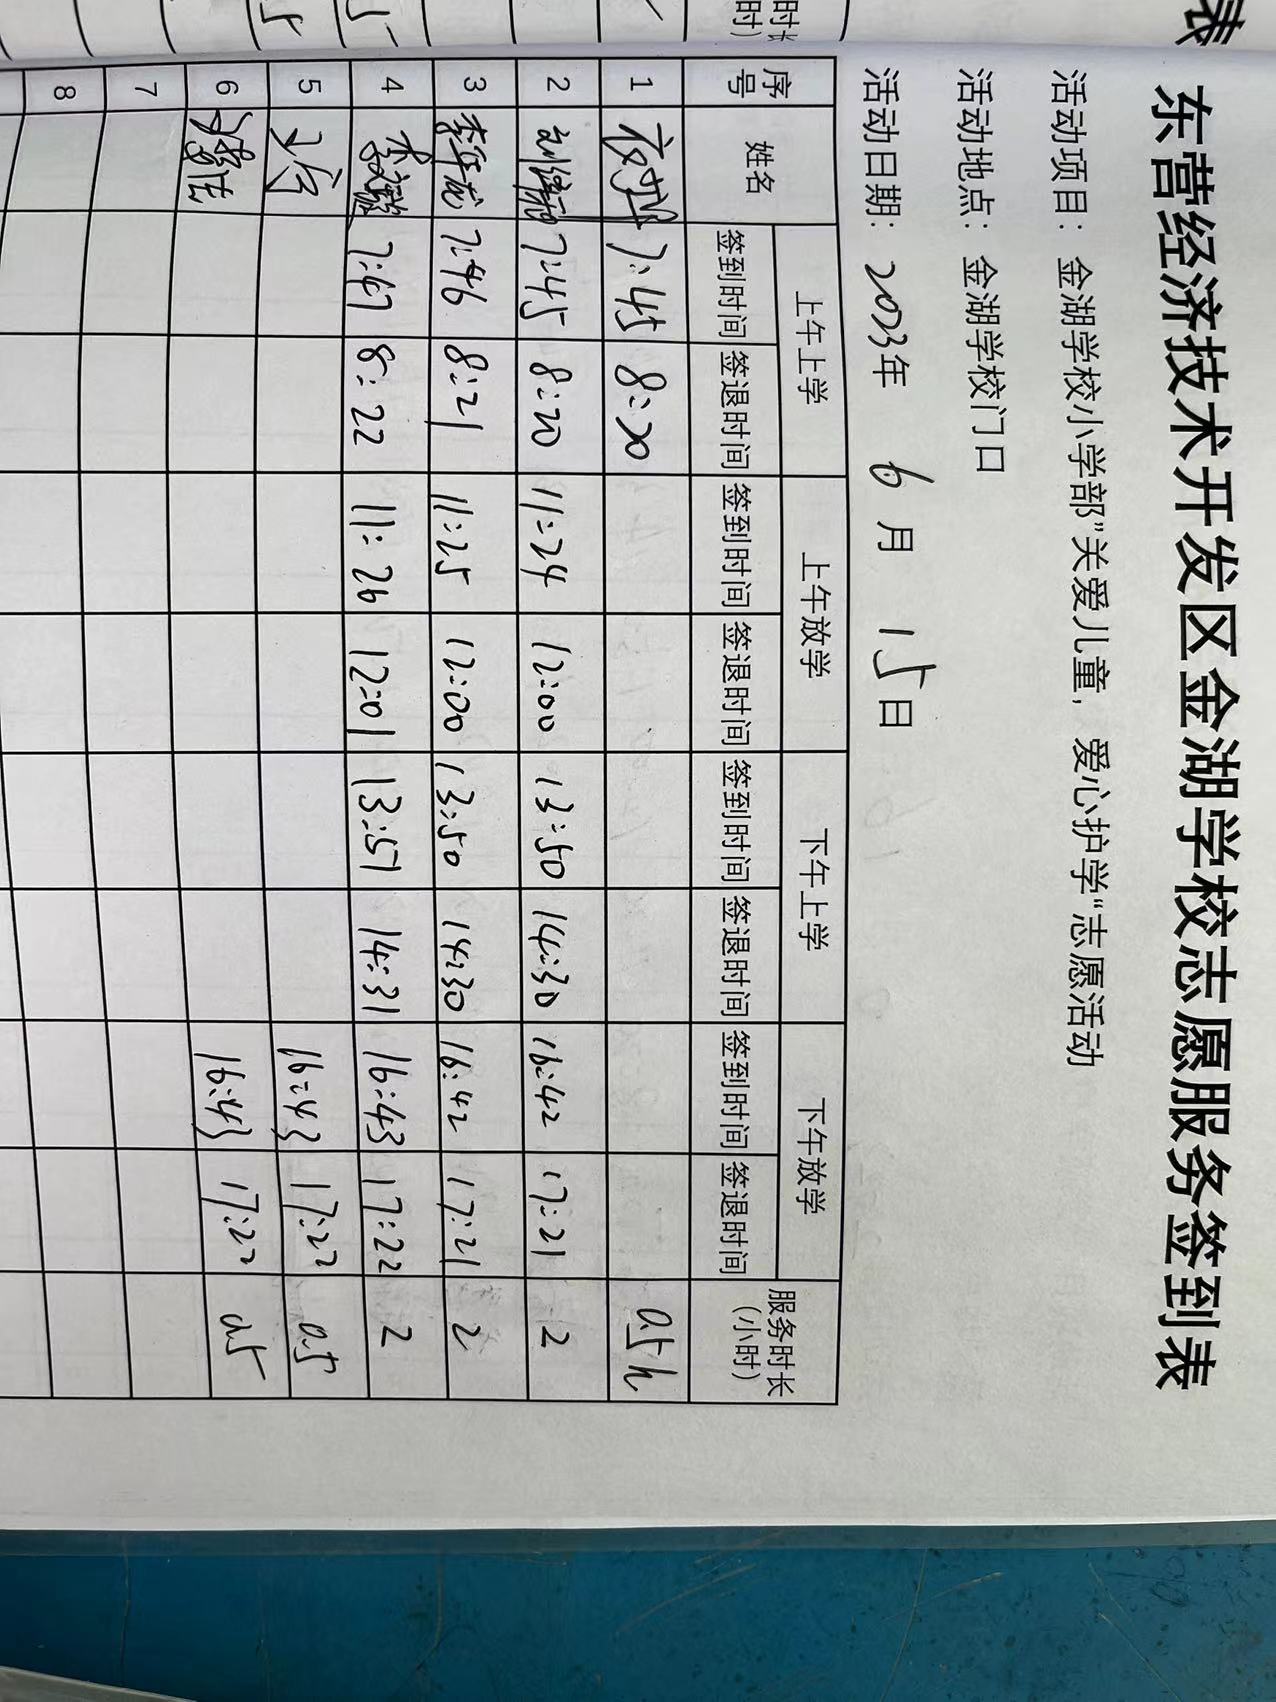 东营经济技术开发区金湖学校志愿服务签到表
活动项目：金湖学校小学部"关爱儿童，爱心护学"志愿活动
活动地点：金湖学校门口
活动日期：2023年 6月 15日
序号 姓名 上午上学 上午放学 下午上学 下午放学 服务时长（小时）
签到时间 签退时间 签到时间 签退时间 签到时间 签退时间 签到时间 签退时间
1 7:45 8:20 0.5h
2 7:45 8:20 11:24 12:00 13:50 14:30 16:42 17:21 2
3 7:46 8:21 11:25 12:00 13:50 14:30 16:42 17:21 2
4 7:47 8:22 11:26 12:01 13:51 14:31 16:43 17:22 2
5 16:43 17:22 0.5
6 16:43 17:22 0.5
7
8